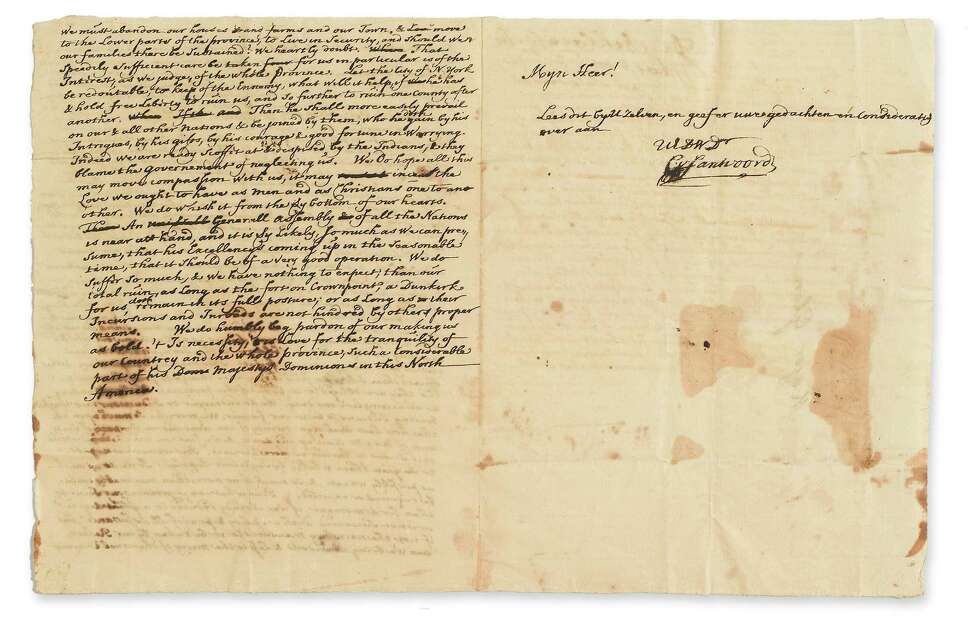 We must abandon our houses & and farms and our Town, & move
to the Lower parts of the province, to Live in Security, and Should We &
our families there be Sustained? We heartly doubt. That
Speadily Sufficient care be taken for us in particular is of the
Interest, as we judge, of the whole Province. Let the City of N York
be redoutable, to keep of the Ennemy, what will it help, if he has
& hold free Liberty to ruin us, and so further to ruin one County after
another. Then he Shall more easely prevail
on our & all other Nations & be joined by them, who he doth gain by his
Intrigues, by his gifts, by his courage & good fortune on Worrying.
Indeed we are ready scoffit at & despysed by the Indians, & they
blame the Governement of neglecting us. We Do hope all this
may move compassion With us, it may increase the
Love we ought to have as Men and as Christians one to ano
other. We do Whish it from the bottom of our hearts.
An Generall Assembly of all the Nations
is near at hand, and it is Likely, So much as We can prey
Sume, that his Excellencys coming up in the Seasonable
time, that it Should be of a very good operation. We do
Suffer So much, & We have nothing to expect, than our
total ruin, as Long as the fort on Crownpoint, a Dunkirk
for us, doth remain in its full posture; or as Long as their
Incursions and Inroads are not hindred by others proper
means. We do humbly beg pardon of our making us
as bold. It Is necessity, Love for the tranquility of
our Countrey and the whole province, Such a Considerable
part of his Majestys Dominions in this North
America.
Myn Heer!
Lees dit Gylt Zelven, en geef er uwe gedachten en Consideratij
over aan
UEDWDr
C V Santvoord